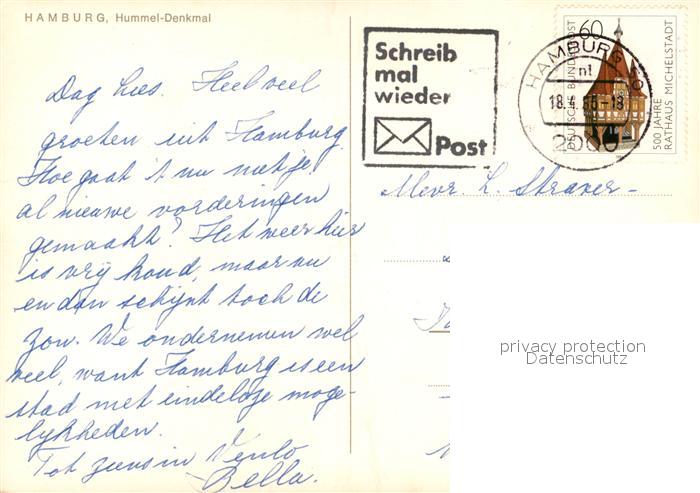 HAMBURG, Hummel-Denkmal
Dag Lies. Heel veel
groeten uit Hamburg.
Hoe gaat it nu met je
al nieuwe vorderingen
gemaakt? Het weer hier
is vrij koud, maar nu
en dan schijnt toch de
zon. We ondernemen wel
veel, want Hamburg is een
stad met eindeloze moge-
lijkheden.
Tot ziens in Venlo
Bella.
Schreib
mal
wieder
Post
HAMBURG
nl
18.4.85-18
2000
60
DEUTSCHE BUNDESPOST
500 JAHRE
RATHAUS MICHELSTADT
Mevr. L. Straver-
privacy protection
Datenschutz